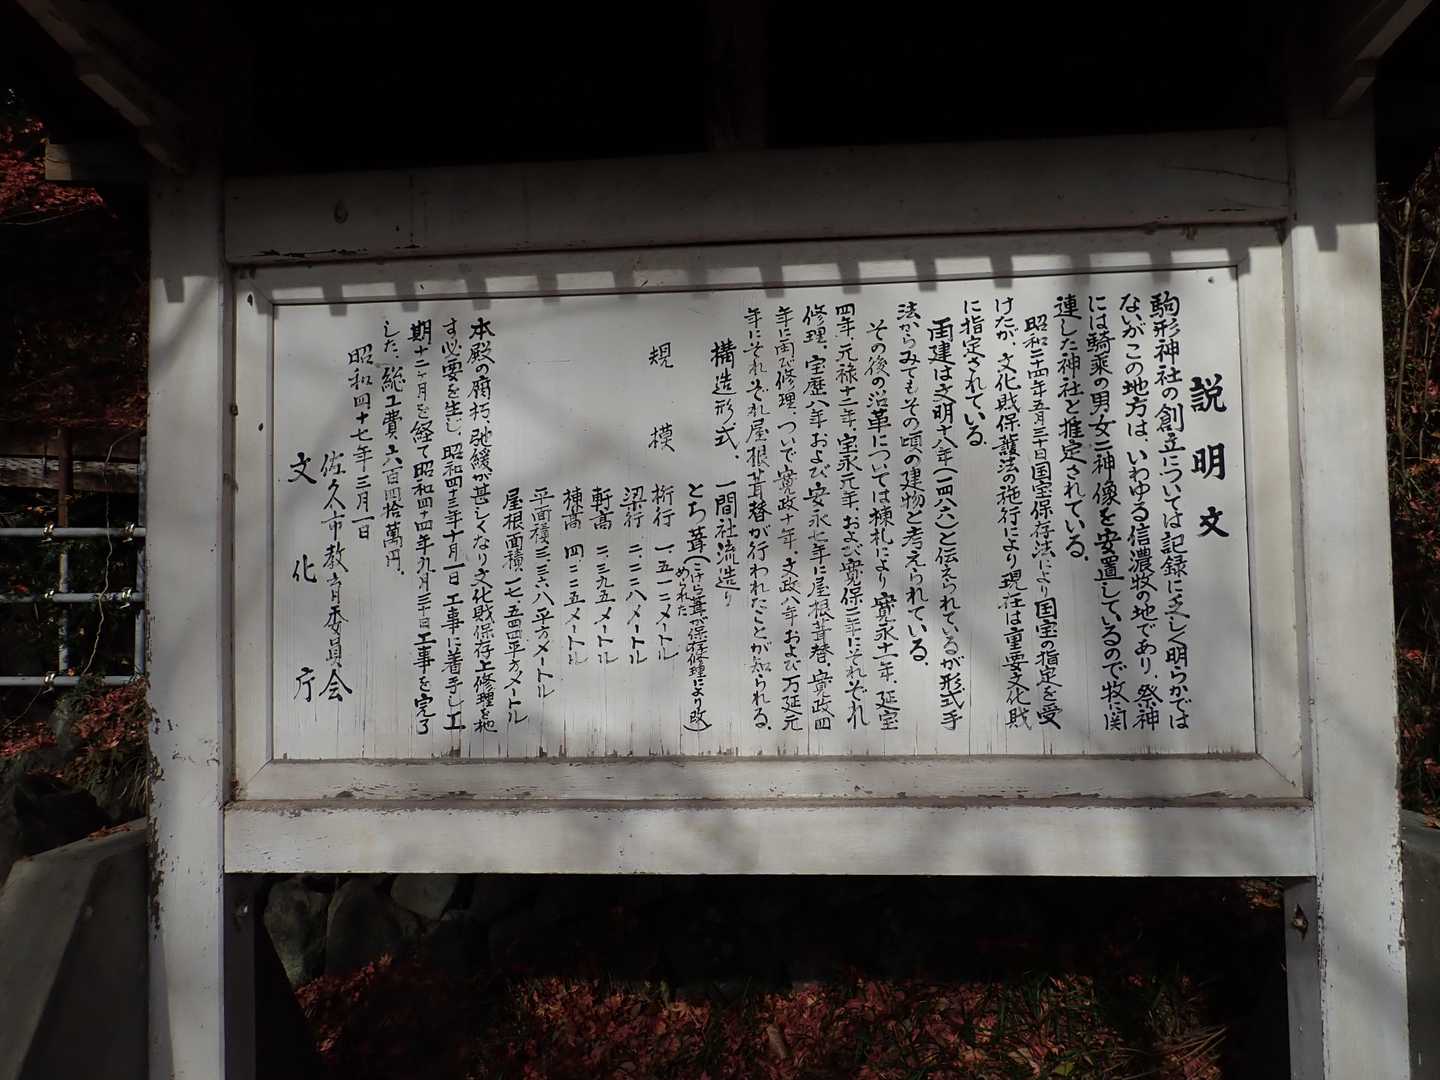 説明文
駒形神社の創立については記録に乏しく明らかでは
ないがこの地方は、いわゆる信濃牧の地であり、祭神
には騎乗の男女二神像を安置しているので牧に関
連した神社と推定されている。
昭和二十四年五月三十日国宝保存法により国宝の指定を受
けたが、文化財保護法の施行により現在は重要文化財
に指定されている。
再建は文明十八年(一四八六)と伝えられているが形式手
法からみてもその頃の建物と考えられている。
その後の沿革については棟札により寛永十一年、延宝
四年、元禄十二年、宝永元年、および寛保二年にそれぞれ
修理、宝歴八年および安永七年に屋根葺替、寛政四
年に再び修理、ついで寛政十年、文政八年および万延元
年にそれぞれ屋根葺替が行われたことが知られる。
構造形式、一間社流造り
とち葺(こけら葺が保存修理により改
められた)
規模
桁行 一.五一二メートル
梁行 二.二二八メートル
軒高 二.三九五メートル
棟高 四.二二五メートル
平面積 三.三六八平方メートル
屋根面積 一七.五四四平方メートル
本殿の腐朽、弛緩が甚しくなり文化財保存上修理を施
す必要を生じ、昭和四十三年十月一日工事に着手し工
期十二ヶ月を経て昭和四十四年九月三十日工事を完了
した、総工費、六百四拾萬円。
昭和四十七年三月一日
佐久市教育委員会
文化庁